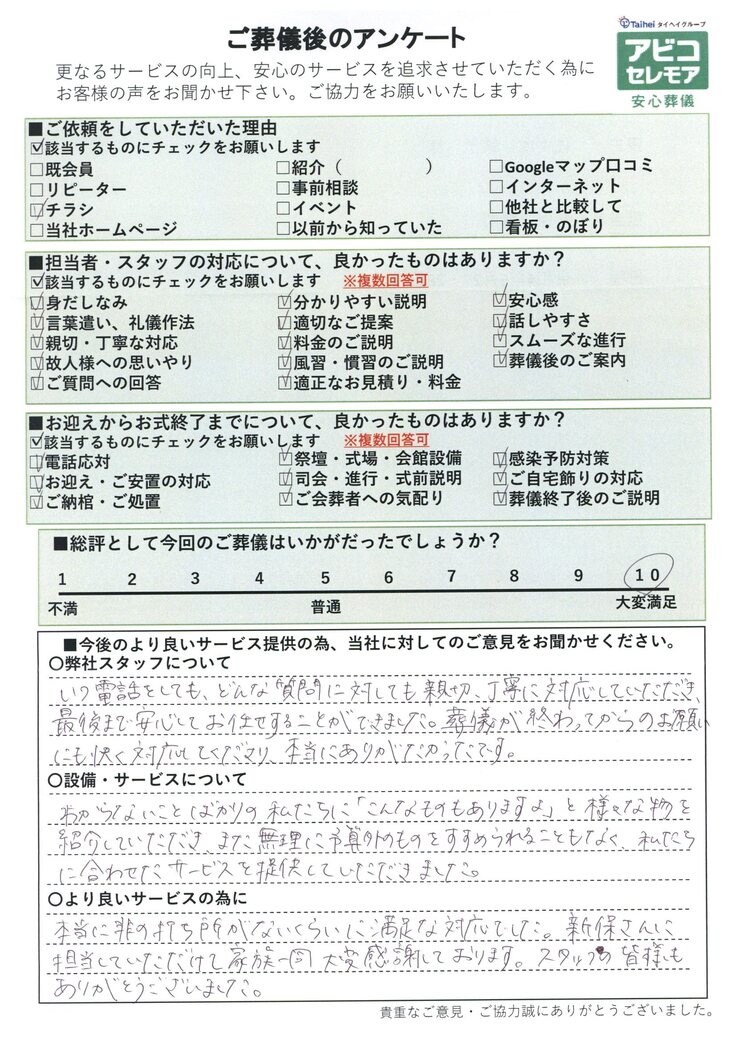 Taihei タイヘイグループ
ご葬儀後のアンケート
アビコ
セレモア
安心葬儀
更なるサービスの向上、安心のサービスを追求させていただく為に
お客様の声をお聞かせ下さい。ご協力をお願いいたします。
■ご依頼をしていただいた理由
☑該当するものにチェックをお願いします
□既会員 □紹介（ ） □Googleマップ口コミ
□リピーター □事前相談 □インターネット
☑チラシ □イベント □他社と比較して
□当社ホームページ □以前から知っていた □看板・のぼり
■担当者・スタッフの対応について、良かったものはありますか？
☑該当するものにチェックをお願いします ※複数回答可
☑身だしなみ ☑分かりやすい説明 ☑安心感
☑言葉遣い、礼儀作法 ☑適切なご提案 ☑話しやすさ
☑親切・丁寧な対応 ☑料金のご説明 ☑スムーズな進行
☑故人様への思いやり ☑風習・慣習のご説明 ☑葬儀後のご案内
☑ご質問への回答 ☑適正なお見積り・料金
■お迎えからお式終了までについて、良かったものはありますか？
☑該当するものにチェックをお願いします ※複数回答可
☑電話応対 ☑祭壇・式場・会館設備 ☑感染予防対策
☑お迎え・ご安置の対応 ☑司会・進行・式前説明 ☑ご自宅飾りの対応
☑ご納棺・ご処置 ☑ご会葬者への気配り ☑葬儀終了後のご説明
■総評として今回のご葬儀はいかがだったでしょうか？
1 2 3 4 5 6 7 8 9 10
不満 普通 大変満足
■今後のより良いサービス提供の為、当社に対してのご意見をお聞かせください。
〇弊社スタッフについて
いつ電話をしても、どんな質問に対しても親切、丁寧に対応していただき、
最後まで安心してお任せすることができました。葬儀が終わってからのお願い
にも快く対応してくださり、本当にありがたかったです。
〇設備・サービスについて
わからないことばかりの私たちに「こんなものもありますよ」と様々な物を
紹介していただき、また無理に予算外のものをすすめられることもなく、私たち
に合わせたサービスを提供していただきました。
〇より良いサービスの為に
本当に非の打ち所がないくらいに満足な対応でした。新保さんに
担当していただけて家族一同大変感謝しております。スタッフの皆様も
ありがとうございました。
貴重なご意見・ご協力誠にありがとうございました。